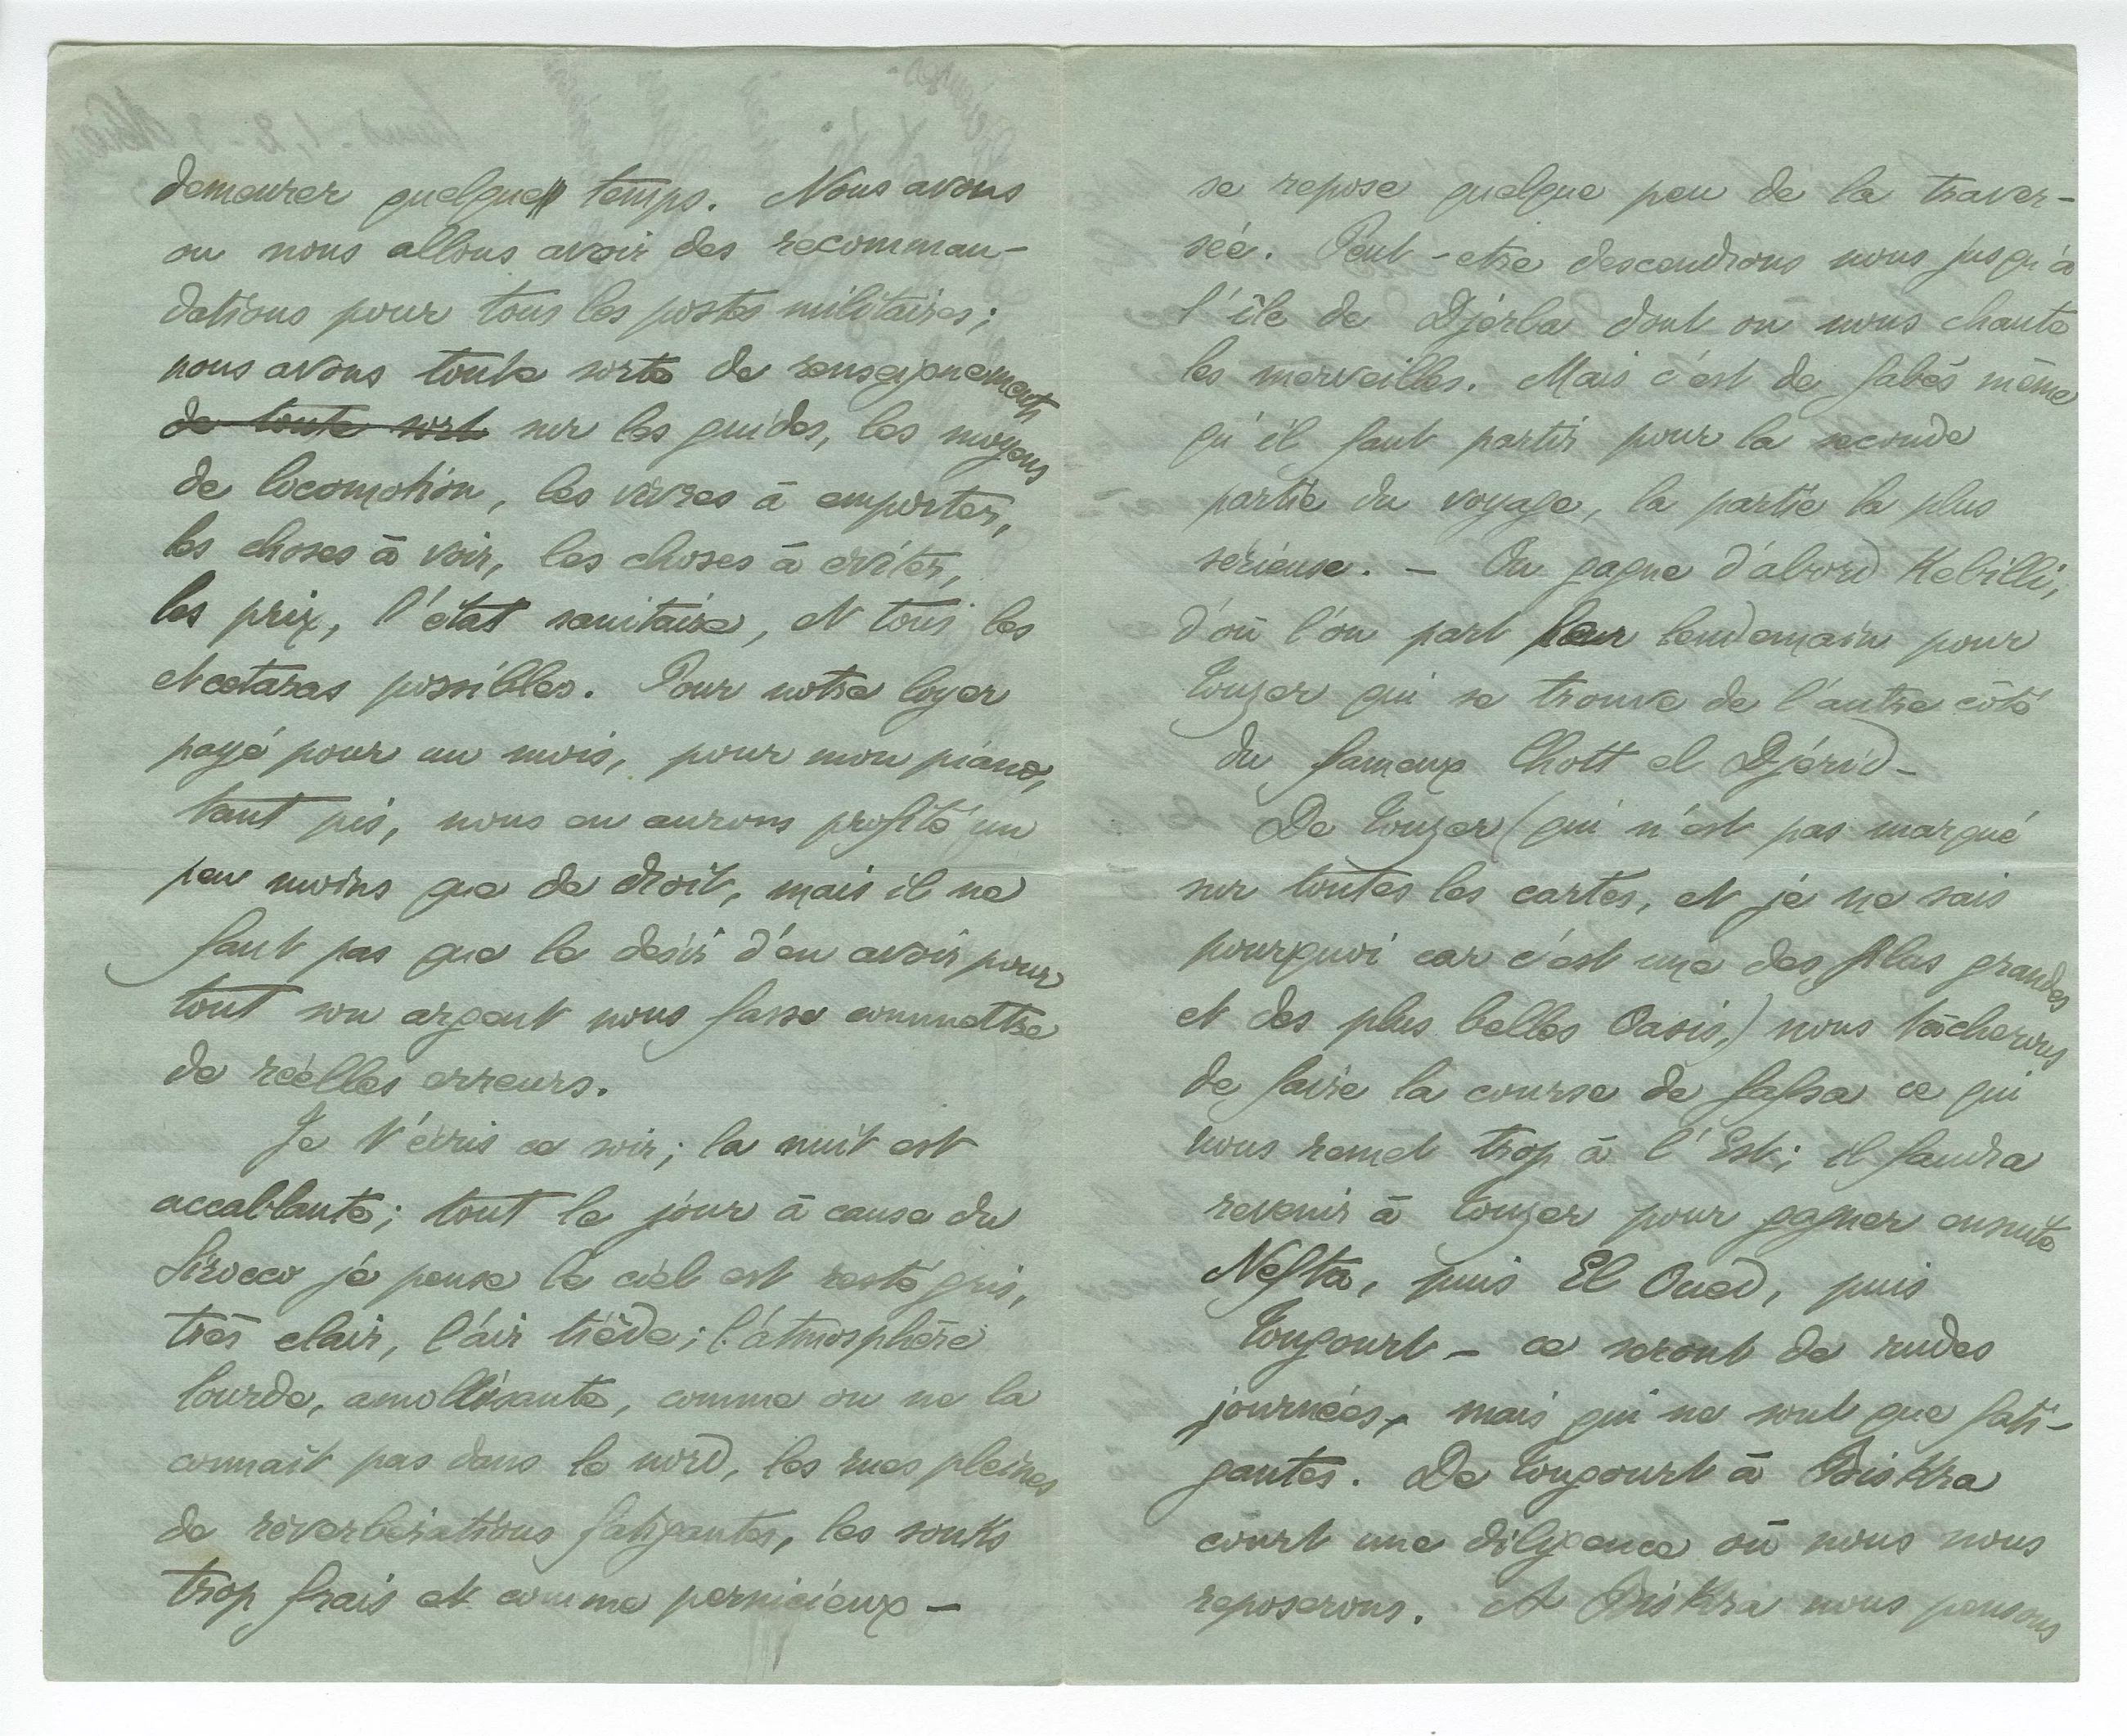 demeurer quelque temps. Nous avons
ou nous allons avoir des recomman-
dations pour tous les postes militaires;
nous avons toute sorte de renseignements
de toute sort sur les guides, les moyens
de locomotion, les vivres à emporter,
les choses à voir, les choses à éviter,
les prix, l'état sanitaire, et tous les
etcætaras possibles. Pour notre loyer
payé pour un mois, pour mon piano,
tant pis, nous en aurons profité un
peu moins que de droit, mais il ne
faut pas que le désir d'en avoir pour
tout son argent nous fasse commettre
de réelles erreurs.
Je t'écris ce soir; la nuit est
accablante; tout le jour à cause du
Sirocco je pense le ciel est resté gris,
très clair, l'air tiède; l'atmosphère
lourde, amollisante, comme on ne la
connaît pas dans le nord, les rues pleines
de réverbérations fatigantes, les souks
trop frais et comme pernicieux —
se repose quelque peu de la traver-
sée. Peut-etre descendrons nous jusqu'à
l'île de Djerba dont on nous chante
les merveilles. Mais c'est de Gabès même
qu'il faut partir pour la seconde
partie du voyage, la partie la plus
sérieuse. — On gagne d'abord Kebilli,
d'où l'on part leur lendemain pour
Touzer qui se trouve de l'autre côté
du fameux Chott el Djérid —
De Touzer (qui n'est pas marqué
sur toutes les cartes, et je ne sais
pourquoi car c'est une des plus grandes
et des plus belles Oasis,) nous tâcherons
de faire la course de Gafsa ce qui
nous remet trop à l'Est; il faudra
revenir à Touzer pour gagner ensuite
Nefta, puis El Oued, puis
Tougourt — ce seront de rudes
journées, mais qui ne sont que fati-
gantes. De Tougourt à Biskra
court une diligence où nous nous
reposerons. A Biskra nous pensons